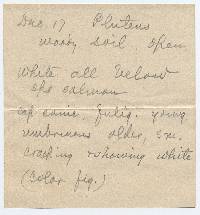 Dec. 17 Pluteus
woody soil open
white all below
sps salmon
cap conic. fulig. young
umbrinous older, sm.
cracking & showing white
(Color fig.)